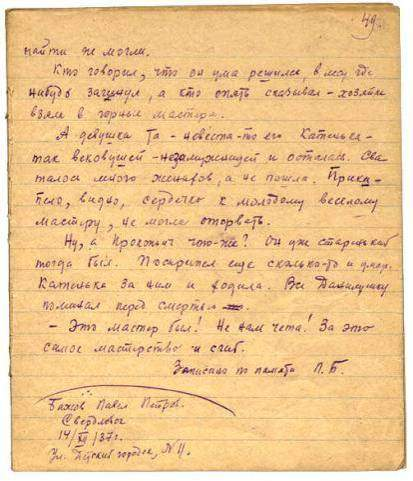 49.
найти не могли.
Кто говорил, что он ума решился, в лесу где-
нибудь загинул, а кто опять сказывал - хозяйка
взяла в горные мастера.
А девушка та - невеста-то его Катенька -
так вековушей - незамужницей и осталась. Сва
талось много женихов, а не пошла. Прики-
пело, видно, сердечко к молодому веселому
мастеру, не могла оторвать.
Ну, а Прокопьич что-же? Он уже старенькой
тогда был. Поскрипел еще сколько-то и умер.
Катенька за ним и ходила. Все Данилушку
поминал перед смертью
- Это мастер был! Не нам чета! За это
самое мастерство и сгиб.
Записано по памяти П. Б.
Бажов Павел Петров.
Свердловск
14/XII/37 г.
Ул.